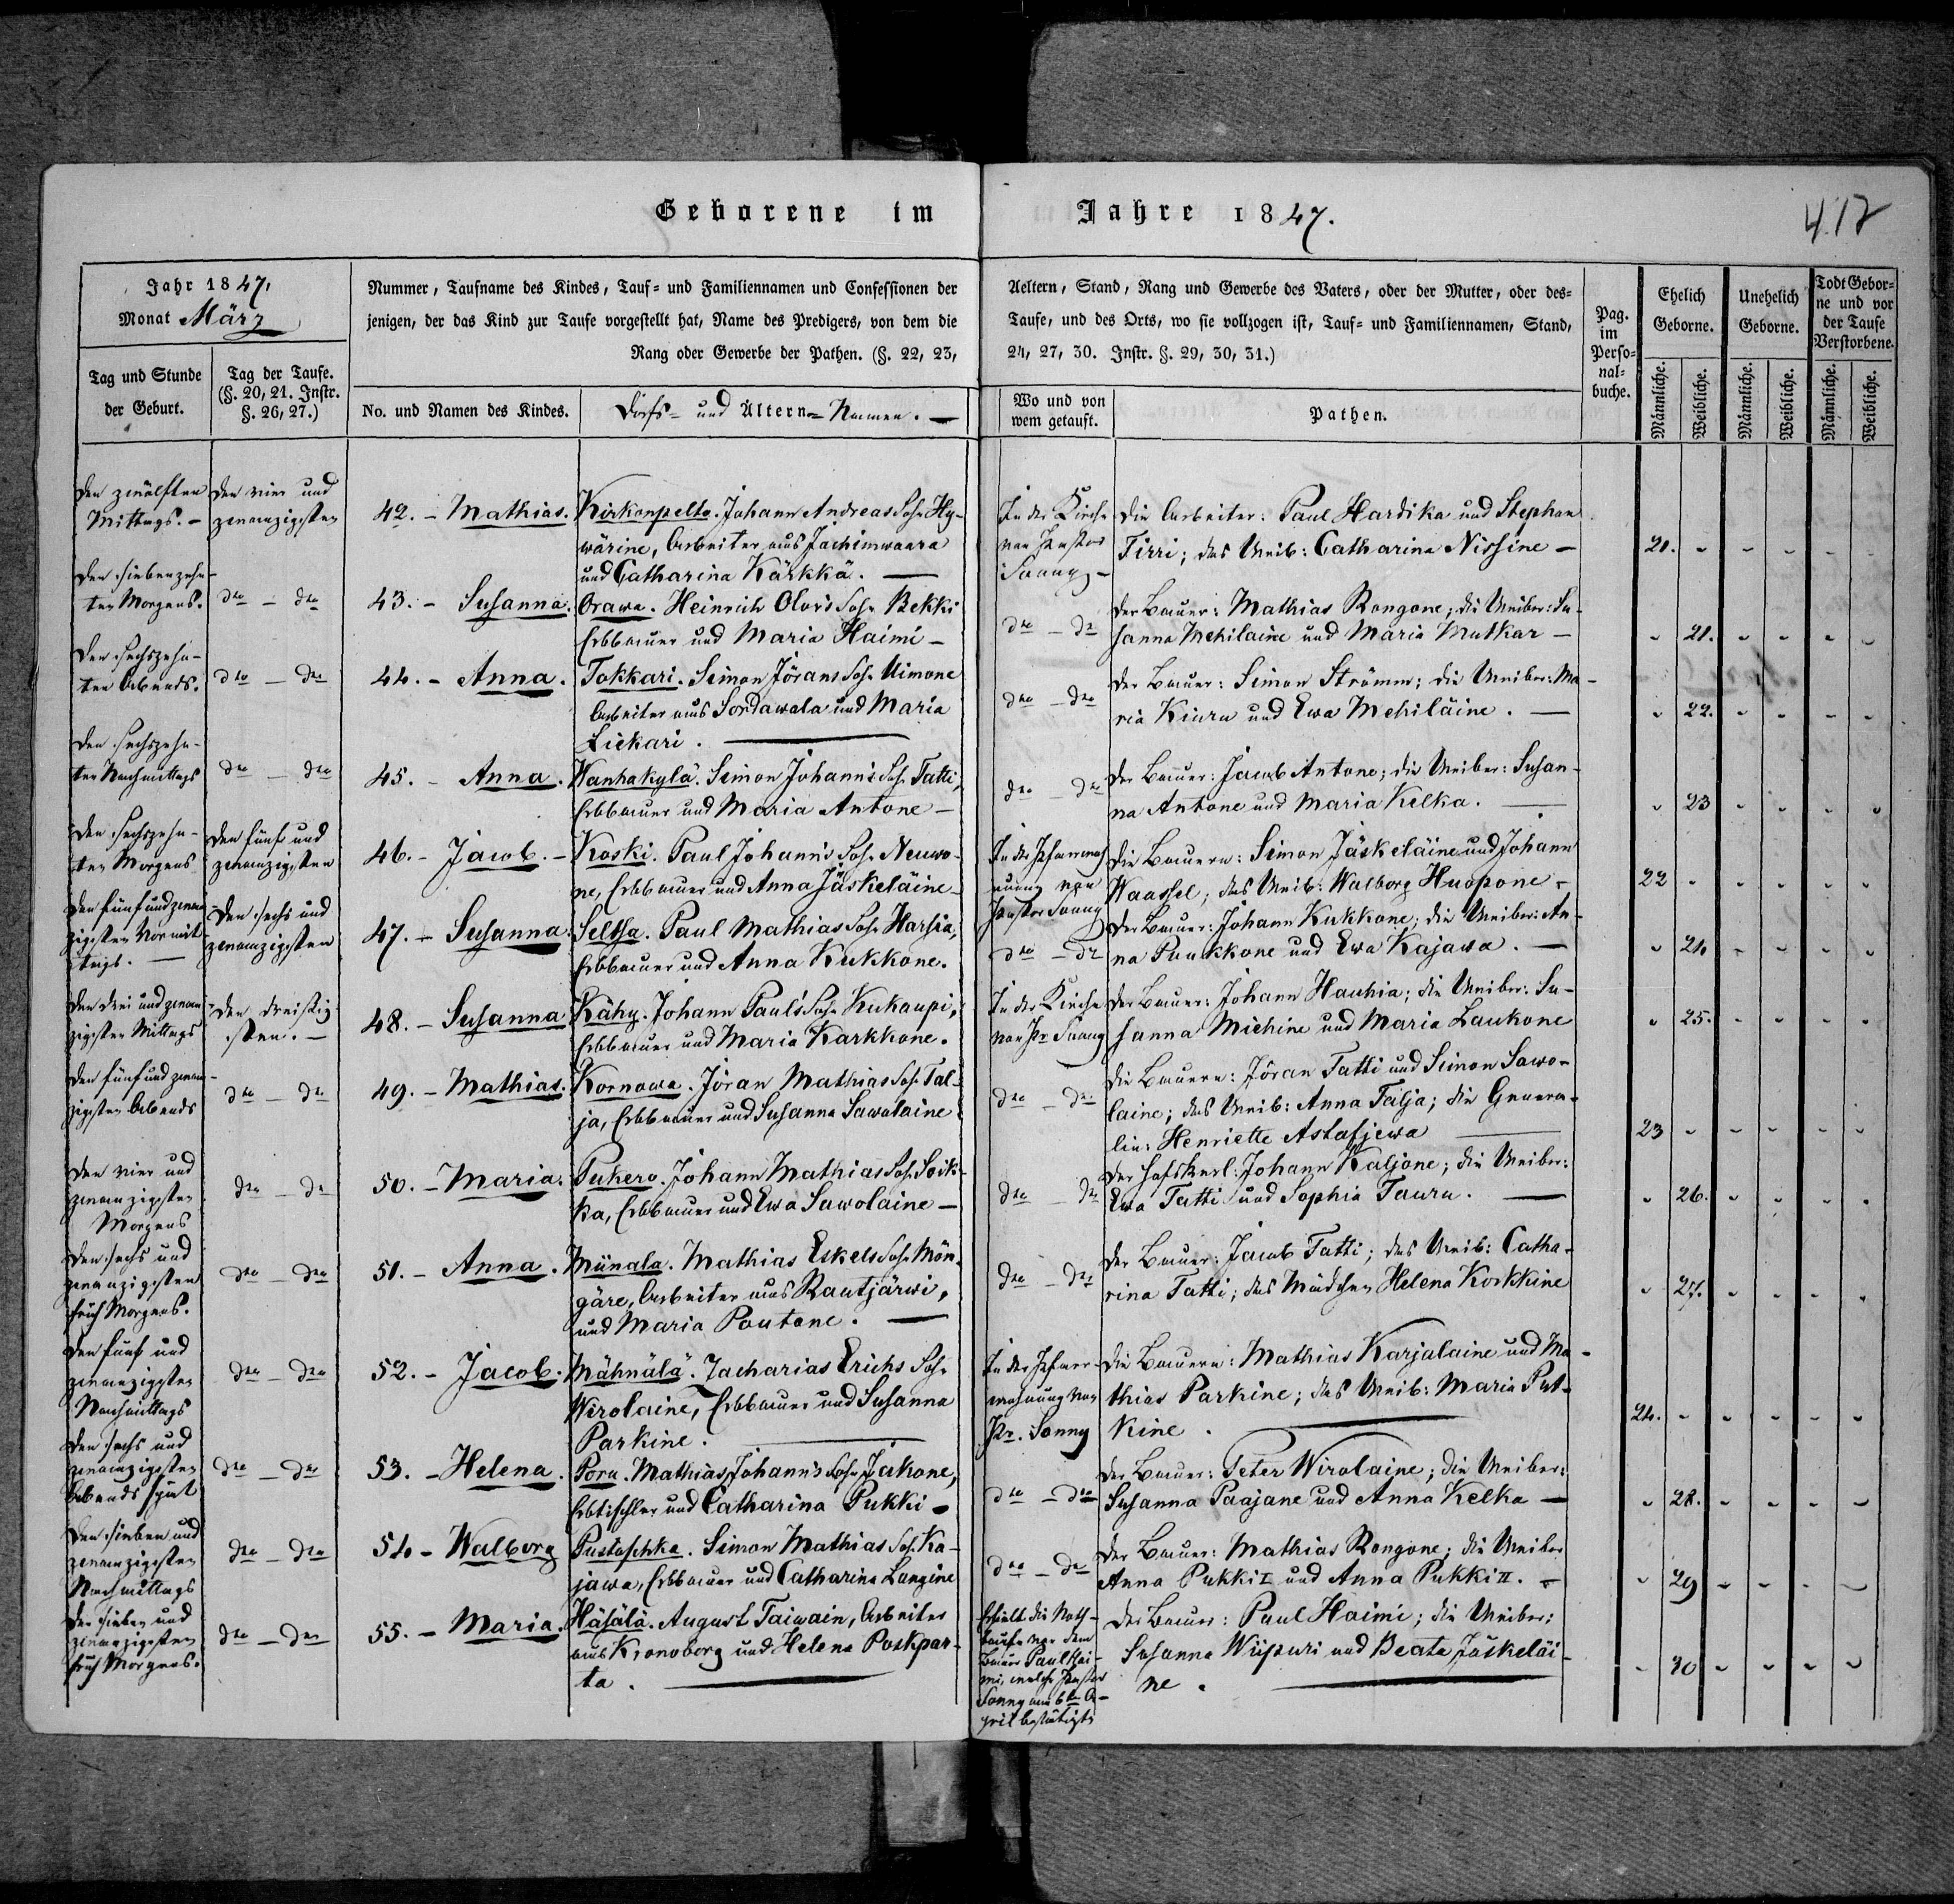 Geborene im Jahre 1847.
417
Jahr 1847,
Monat März
Tag und Stunde
der Geburt.
Tag der Taufe.
(§. 20, 21. Instr.
§. 26, 27.)
Nummer, Taufname des Kindes, Tauf- und Familiennamen und Confessionen der
jenigen, der das Kind zur Taufe vorgestellt hat, Name des Predigers, von dem die
Rang oder Gewerbe der Pathen. (§. 22, 23,
No. und Namen des Kindes.
Dorfs- und Ältern-Namen. —
Aeltern, Stand, Rang und Gewerbe des Vaters, oder der Mutter, oder des-
Taufe, und des Orts, wo sie vollzogen ist, Tauf- und Familiennamen, Stand,
24, 27, 30. Instr. §. 29, 30, 31.)
Wo und von
wem getauft.
Pathen.
Pag.
im
Perso-
nal-
buche.
Ehelich
Geborne.
Unehelich
Geborne.
Todt Gebor-
ne und vor
der Taufe
Verstorbene.
Männliche.
Weibliche.
Männliche.
Weibliche.
Männliche.
Weibliche.
den zwölften
Mittags. –
den vier und
zwanzigsten
42. – Mathias.
Kirkonpelto. Johann Andreas Sohn Hy-
wärine, Arbeiter aus Jachimwaara
und Catharina Kärkkä. —
In der Kirche
von Pastor
Sonny –
die Arbeiter: Paul Hardika und Stephan
Tirri; das Weib: Catharina Nissine –
21.
den siebenzehn-
ten Morgens.
dto – dto
43. – Susanna.
Orawa. Heinrich Olovs Sohn Rekki
Erbbauer und Maria Haimi –
dto – dto
der Bauer: Mathias Rongone; die Weiber: Su-
sanna Mehilaine und Maria Mutkar –
21.
den sechszehn-
ten Abends.
dto – dto
44. – Anna.
Tokkari. Simon Jörans Sohn Uimone
Arbeiter aus Sordawala und Maria
Liekari. —
dto – dto
der Bauer: Simon Strömm; die Weiber: Ma-
ria Kiuru und Ewa Mehiläine. —
22.
den sechszehn-
ten Nachmittags
dto – dto
45. – Anna.
Wanhakylä. Simon Johann's Sohn Tatti,
Erbbauer und Maria Antone –
dto – dto
der Bauer: Jacob Antone; die Weiber: Susan-
na Antone und Maria Kelka. —
23
den sechszehn-
ten Morgens
den fünf und
zwanzigsten
46. – Jacob. –
Koski. Paul Johann's Sohn Neuwo-
ne, Erbbauer und Anna Jäskeläine –
In der Pfarrwoh-
nung von
Pastor Sonny
die Bauern: Simon Jäskeläine und Johann
Waassel; das Weib: Walborg Huopone –
22
den fünf und zwan-
zigsten Vormit-
tags. —
den sechs und
zwanzigsten
47. – Susanna.
Seltsa. Paul Mathias Sohn Harsia,
Erbbauer und Anna Kukkone.
dto – dto
der Bauer: Johann Kukkone; die Weiber: An-
na Puukkone und Ewa Kajawa. —
24
den drei und zwan-
zigsten Mittags
den dreißig-
sten. –
48. – Susanna
Kähy. Johann Paul's Sohn Kukaupi,
Erbbauer und Maria Karkkone.
In der Kirche
von Pr. Sonny
der Bauer: Johann Hauhia; die Weiber: Su-
sanna Michine und Maria Laukone
25.
den fünf und zwan-
zigsten Abends
dto – dto
49. – Mathias.
Kornowa. Jöran Mathias Sohn Tal-
ja, Erbbauer und Susanna Sawolaine
dto – dto
die Bauern: Jöran Tatti und Simon Sawo-
laine; das Weib: Anna Talja; die Genera-
lin: Henriette Astafjewa —
23
den vier und
zwanzigsten
Morgens
dto – dto
50. – Maria.
Pukero. Johann Mathias Sohn Soik-
ka, Erbbauer und Ewa Sawolaine –
dto – dto
der Hofskerl: Johann Kaljone; die Weiber:
Ewa Tatti und Sophia Tauru. —
26.
den sechs und
zwanzigsten
früh Morgens.
dto – dto
51. – Anna.
Miinala. Mathias Eskels Sohn Mön-
gäre, Arbeiter aus Rautjärwi,
und Maria Poutane. —
dto – dto
der Bauer: Jacob Tatti; das Weib: Catha-
rina Tatti; das Mädchen Helena Korkkine
27.
den fünf und
zwanzigsten
Nachmittags
dto – dto
52. – Jacob.
Mähnälä. Zacharias Erichs Sohn
Wirolaine, Erbbauer und Susanna
Parkine. —
In der Pfarr-
wohnung von
Pr. Sonny
die Bauern: Mathias Karjalaine und Ma-
thias Parkine; das Weib: Maria Put-
kine. —
24.
den sechs und
zwanzigsten
Abends spät
dto – dto
53. – Helena.
Poru. Mathias Johann's Sohn Jakone,
Erbtischler und Catharina Pukki –
dto – dto
der Bauer: Peter Wirolaine; die Weiber:
Susanna Paajane und Anna Kelka —
28.
den sieben und
zwanzigsten
Nachmittags
dto – dto
54 – Walborg
Pustoschka. Simon Mathias Sohn Ka-
jawa, Erbbauer und Catharina Langine
dto – dto
der Bauer: Mathias Rongone; die Weiber
Anna Pukki I und Anna Pukki II. –
29
den sieben und
zwanzigsten
früh Morgens.
dto – dto
55. – Maria.
Häjälä. August Taiwain, Arbeiter
aus Kronoborg und Helena Poskpar-
ta. —
Erhielt die Noth-
taufe von dem
Bauer Paul Hai-
mi, welche Pastor
Sonny am 6ten A-
pril bestätigte
der Bauer: Paul Haimi; die Weiber:
Susanna Wiipuri und Beata Jäskeläi-
ne. —
30